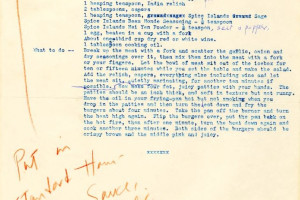 1 heaping teaspoon, India relish
2 tablespoons, capers
1 heaping teaspoon, Spice Islands Sage
Spice Islands Beau Monde seasoning - ½ teaspoon
Spice Islands Mei Yen Powder - ½ teaspoon,
1 egg, beaten in a cup with a fork
About one-third cup dry red or white wine.
1 tablespoon cooking oil.
What to do -- Break up the meat with a fork and scatter the garlic, onion and
dry seasonings over it, then mix them into the meat with a fork
or your fingers. Let the bowl of meat sit out of the icebox for
ten or fifteen minutes while you set the table and make the salad.
Add the relish, capers, everything else including wine and let
the meat sit, quietly marinating, for another ten minutes if
possible. Now make four fat, juicy patties with your hands. The
patties should be an inch thick, and soft in texture but not runny.
Have the oil in your frying-pan hot but not smoking when you
drop in the patties and then turn the heat down and fry the
burgers about four minutes. Take the pan off the burner and turn
the heat high again. Flip the burgers over, put the pan back on
the hot fire, then after one minute, turn the heat down again and
cook another three minutes. Both sides of the burgers should be
crispy brown and the middle pink and juicy.
Put in
Sauce